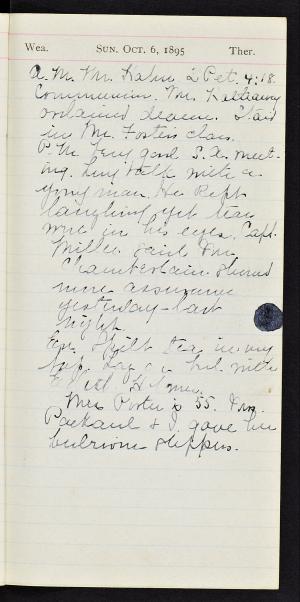 Wea. SUN. OCT. 6, 1895 Ther.
A. M. Mr. Hahn 2 Pet. 4:18.
Communion. Mr. Hathaway
ordained deacon. Staid
in Mr. Foster's class.
P. M. Very good S. A. meet-
ing. Long talk with a
young man. He kept
laughing yet tears
were in his eyes. Capt.
Miller said Mr.
Chamberlain showed
more assurance
yesterday - last
night.
Eve. Spilt tea in my
lap.
Mrs Porter is 55. Mrs.
Packard & I gave her
bedroom slippers.